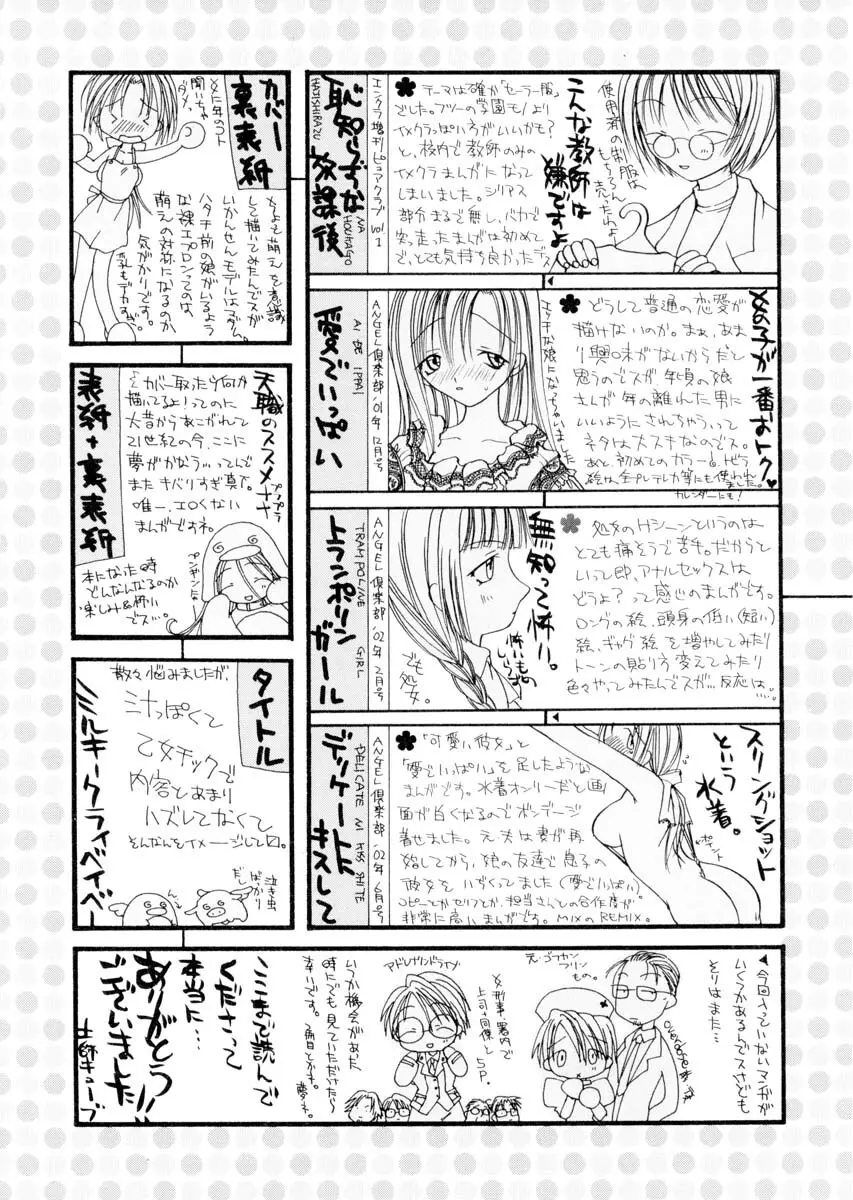 こんな教師は
嫌ですよ
使用済の制服は
もちろん
売るわよ
テーマは確か「セーラー服」
でした。フツーの学園モノより
イメクラっぽい方がいいかも?
と、校内で教師のみの
イメクラまんがになって
しまいました。シリアス
部分まるで無し、バカで
突っ走ったまんがは初めて
で、とても気持ち良かったデス
エンクラ増刊ピュアクラブ vol.1
恥知らずな放課後
HAJISHIRAZU NA HOUKAGO
女の子が一番おトク♥
どうして普通の恋愛が
描けないのか。まぁ、あま
り興味がないからだと
思うのでスが、年頃の娘
さんが年の離れた男に
いいようにされちゃうって
ネタは大スキなのでス。
あと、初めてのカラー。トビラ
絵は全プレテレカ等にも使われ
ました。
カレンダーにも!
エッチな娘になってもらいました
ANGEL倶楽部 '01年12月号
AI DE IPPAI
愛でいっぱい
処女のHシーンというのは
とても痛そうで苦手。だからと
いって即、アナルセックスは
どうよ?って感じのまんがです。
ロングの絵、頭身の低い(短い)
絵、ギャグ絵を増やしてみたり
トーンの貼り方変えてみたり
色々やってみたんでスが…反応は…
無知って怖い。
怖いもの
しらず
でも
処女。
ANGEL倶楽部 '02年2月号
TRAMPOLINE GIRL
トランポリンガール
スリングショット
という
水着。
「可愛い彼女」と
「愛でいっぱい」を足したような
まんがです。水着オンリーだと画
面が白くなるのでボンデージ
着せました。元・夫は妻が再
婚してから、娘の友達で息子の
彼女をいぢくってました(愛でいっぱい)
コピーとかセリフとか、担当さんとの合作度が
非常に高いまんがです。MIXのREMIX。
ANGEL倶楽部 '02年6月号
DELICATE NI KISS SHITE
デリケートにキスして
カバー
裏表紙
女に年のコト
聞いちゃ
ダメ。
して描いてみたんでスが
いかんせんモデルはママさん。
ハタチ前の娘がいるよう
な裸エプロンってのは、
萌えの対称になるのか
気がかりです。
乳もデカすぎ
表紙+裏表紙
天職のススメ
「カバー取ったら何か
描いてるよ!」ってのに
大昔からあこがれて
21世紀の今、ここに
夢がかなう…ってんで
またキバりすぎ真下。
唯一、エロくない
まんがですネ。
本になった時
どんなんなるのか
楽しみ&怖い
でス…
タイトル
散々悩みましたが、
三汁っぽくて
乙女チックで
内容とあまり
ハズレてなくて
そんなんをイメージして四。
泣き虫
ばっかり
だし
ミルキークライベイベー
◀今回入っていないマンガが
いくつかあるんでスけども
それはまた…
元・ゴーカン
プリンス
もの。
アドレナリンドライブ
女刑事署内で
上司+同僚と
5P.
いつか機会があった
時にでも見ていただけたら〜
幸いです。2冊目とかネ。
夢ネ。
ここまで読んで
くださって
本当に…
ありがとう
ございました!!
土師キューブ